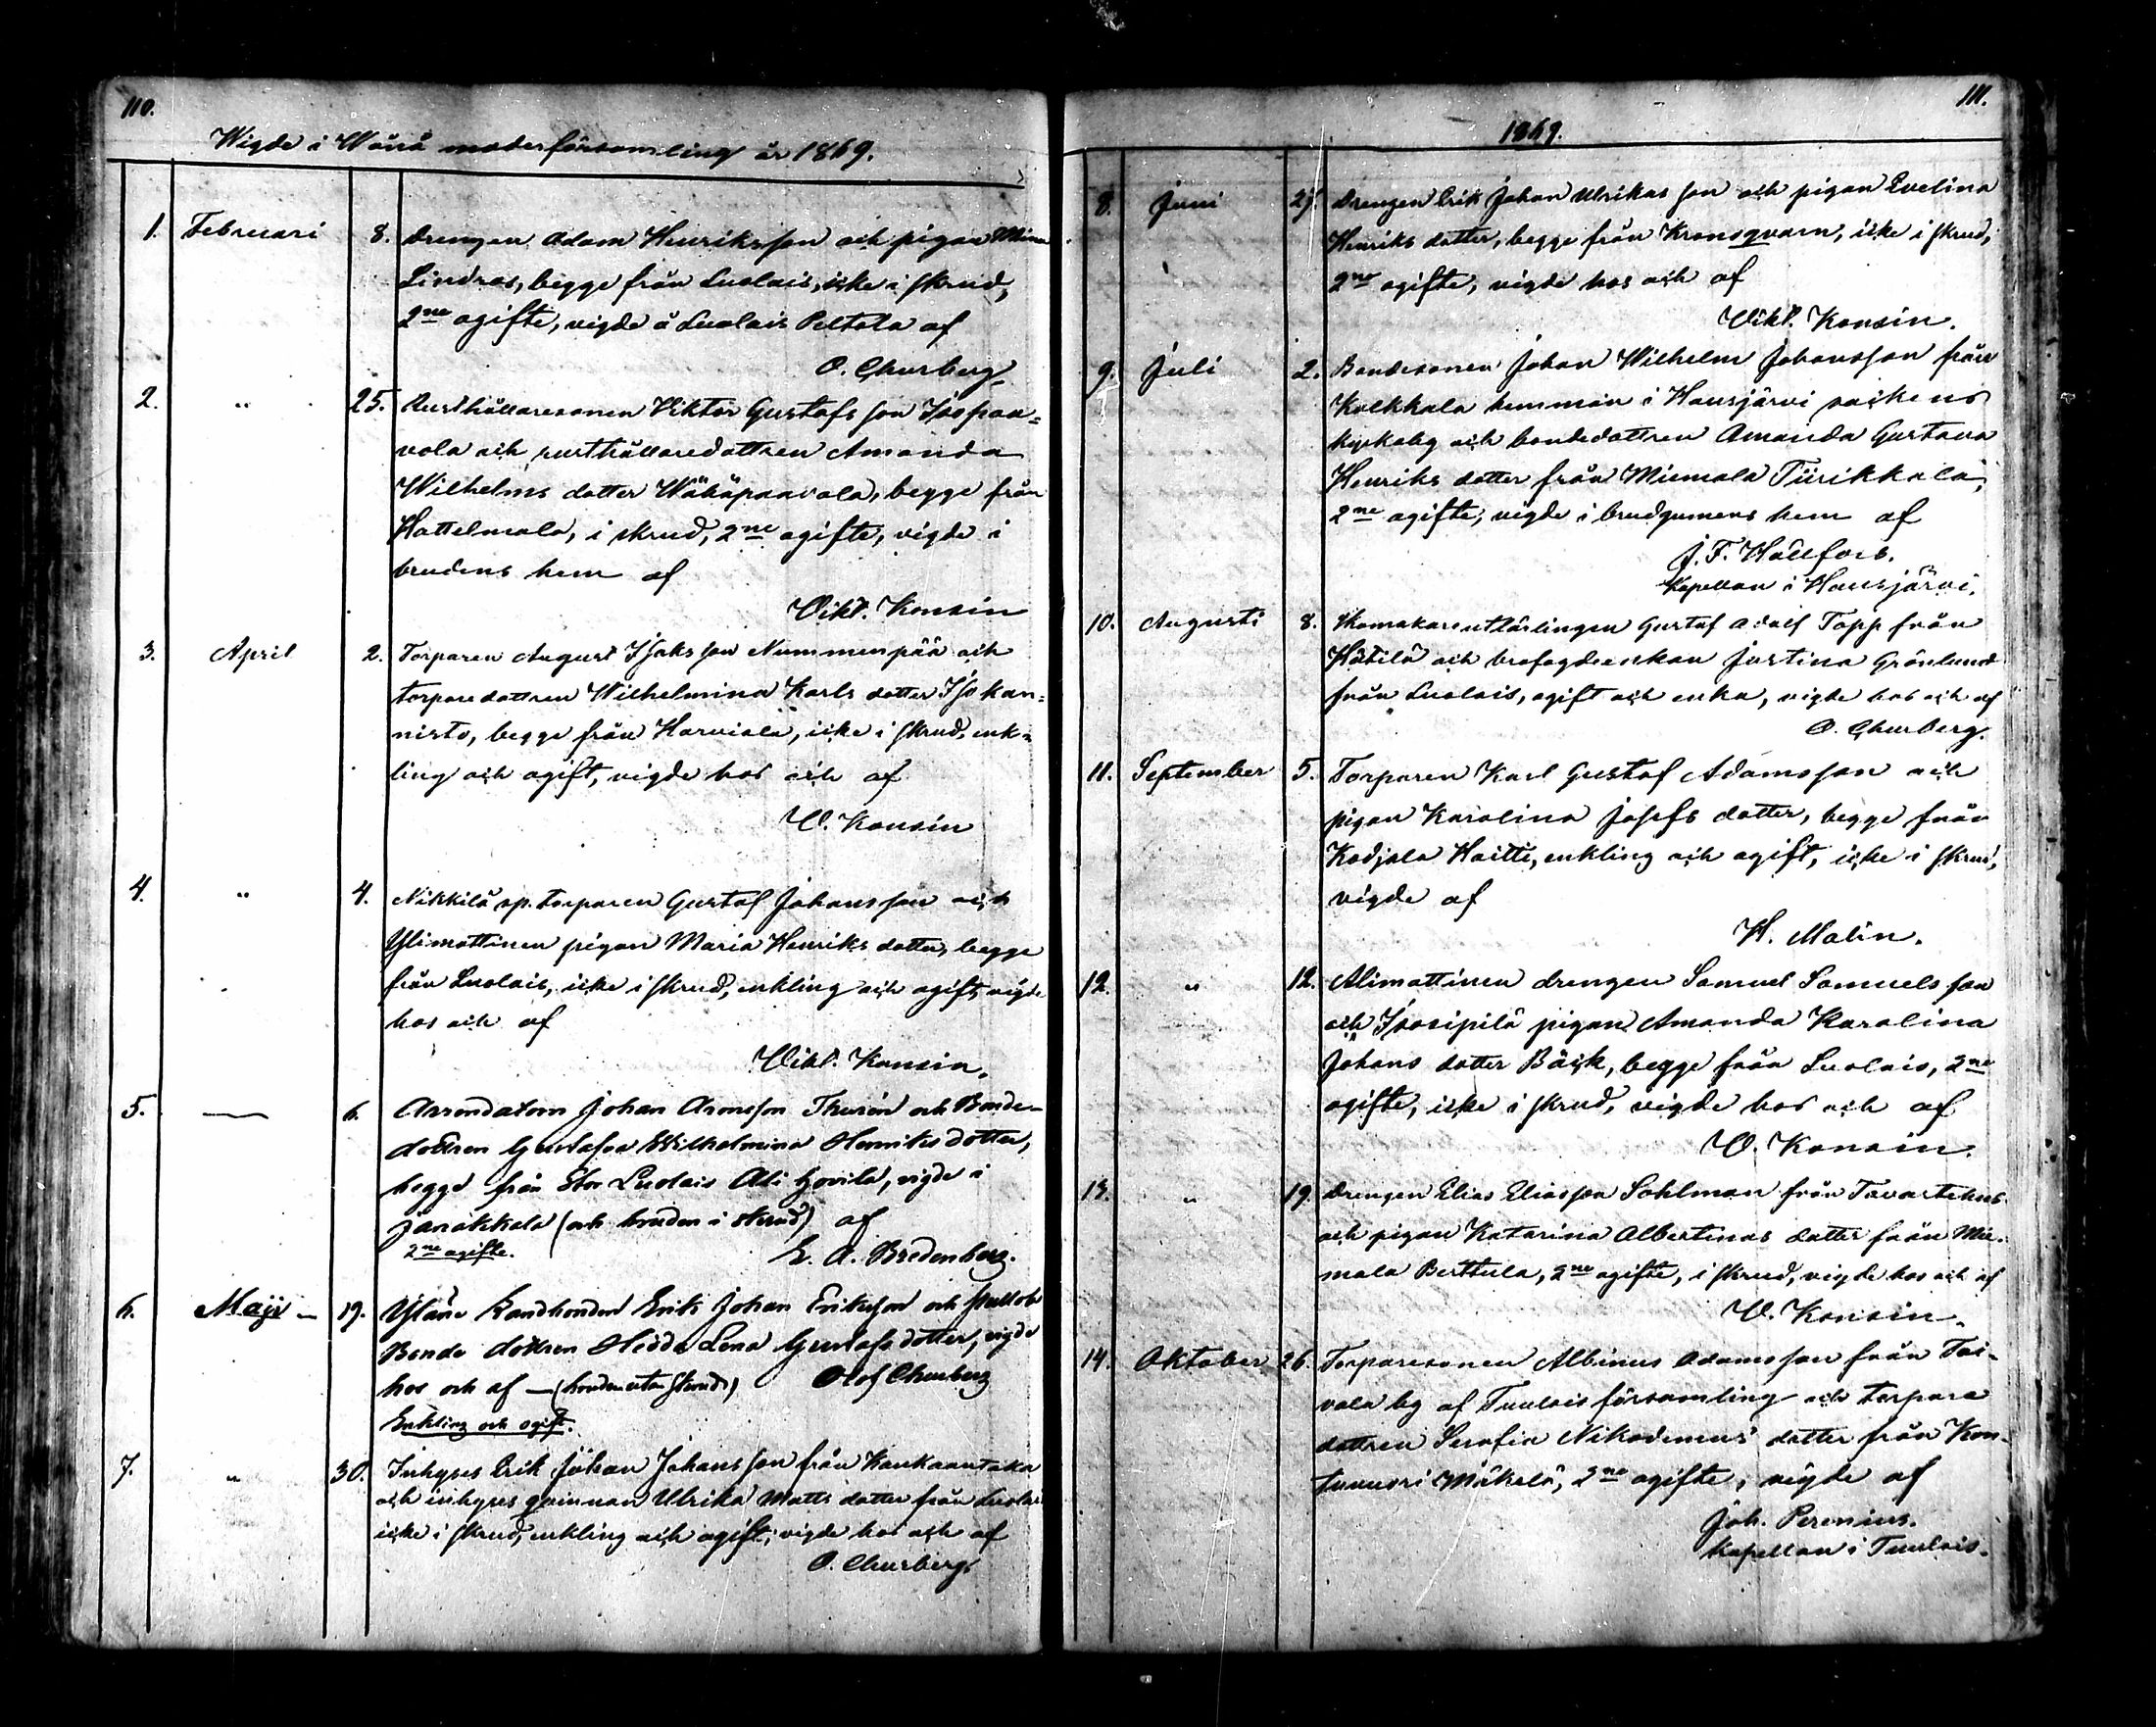 110.
Wigde i Wånå moderförsamling år 1869.
1. Februari 8. Drengen Adam Henriksson och pigan Mina
Lindros, begge från Luolais, icke i skrud,
2ne ogifte, vigde å Luolais Peltola af
O. Churberg.
2. " 25. Rusthållaresonen Viktor Gustafsson Isopaa-
vola och rusthållaredottren Amanda
Wilhelms dotter Wähäpaavola, begge från
Hattelmala, i skrud, 2ne ogifte, vigde i
brudens hem af
Vikt. Konsin
3. April 2. Torparen August Isaksson Nummenpää och
torparedottren Wilhelmina Karls dotter Iso kan-
nisto, begge från Harviala, icke i skrud, enk-
ling och ogift, vigde hos och af
V. Konsin
4. " 4. Nikkilä sp. torparen Gustaf Johansson och
Ylimattinen pigan Maria Henriks dotter, begge
från Luolais, icke i skrud, enkling och ogift, vigde
hos och af
Vikt. Konsin.
5. — 6. Arrendatorn Johan Aronsson Thurén och Bonde-
dottren Gustafva Wilhelmina Henriks dotter,
begge från Stor Luolais Ali Hovila, vigde i
Janakkala (och bruden i skrud) af
2ne ogifte. E. A. Bredenberg.
6. Maji — 19. Yläne Landbonden Erik Johan Eriksson och
Bonde dottren Hedda Lena Gustafs dotter, vigde
hos och af — (bruden utan skrud) Olof Churberg
Enkling och ogift.
7. " 30. Inhyses Erik Johan Johansson från Kankaantaka
och inhyses qvinnan Ulrika Matts dotter från Luolais
icke i skrud, enkling och ogift, vigde hos och af
O. Churberg.
111.
1869.
8. Juni 27. Drengen Erik Johan Ulrikas son och pigan Evelina
Henriks dotter, begge från Kronsqvarn, icke i skrud,
2ne ogifte, vigde hos och af
Vikt. Konsin.
9. Juli 2. Bondesonen Johan Wilhelm Johansson från
Kolkkala hemman i Hausjärvi sockens
kyrkoby och bondedottren Amanda Gustava
Henriks dotter från Miemala Tiirikkala,
2ne ogifte, vigde i brudgumens hem af
J. F. Hällfors.
Kapellan i Hausjärvi.
10. Augusti 8. Skomakareutlärlingen Gustaf Adolf Topp från
Hätilä och brofogdeenkan Justina Grönlund
från Luolais, ogift och enka, vigde hos och af
O. Churberg.
11. September 5. Torparen Karl Gustaf Adamsson och
pigan Karolina Josefs dotter, begge från
Kodjala Haitti, enkling och ogift, icke i skrud,
vigde af
H. Malin.
12. " 12. Alimattinen drengen Samuel Samuelsson
och Isosipilä pigan Amanda Karolina
Johans dotter Bäck, begge från Luolais, 2ne
ogifte, icke i skrud, vigde hos och af
V. Konsin.
13. " 19. Drengen Elias Eliasson Sohlman från Tavastehus
och pigan Katarina Albertinas dotter från Mie-
mala Berttula, 2ne ogifte, i skrud, vigde hos och af
V. Konsin.
14. Oktober 26. Torparesonen Albinus Adamsson från Toi-
vala by af Tuulois församling och torpare
dottren Serafia Nikodemus dotter från Kon-
tuvuori Mäkelä, 2ne ogifte, vigde af
Joh. Perenius.
Kapellan i Tuulois.